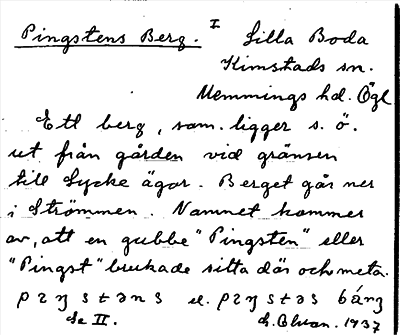 Pingstens Berg. I Lilla Boda
Kimstads sn.
Memmings hd. Ögl
Ett berg, som ligger s. ö.
ut från gården vid gränsen
till Lycke ägor. Berget går ner
i Strömmen. Namnet kommer
av, att en gubbe "Pingsten" eller
"Pingst" brukade sitta där och meta.
pɪŋstəns el. pɪŋstəs bárɡ
Se II.
1937